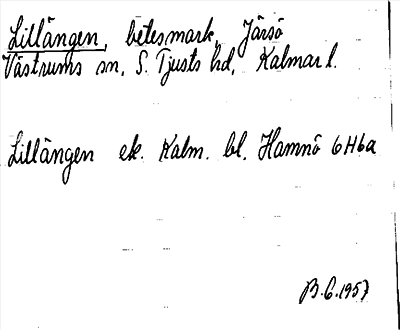 Lillängen, betesmark, Järsö
Västrums sn, S. Tjusts hd, Kalmar l.
Lillängen ek. Kalm. bl. Hamnö 6H6a
B.G.1957